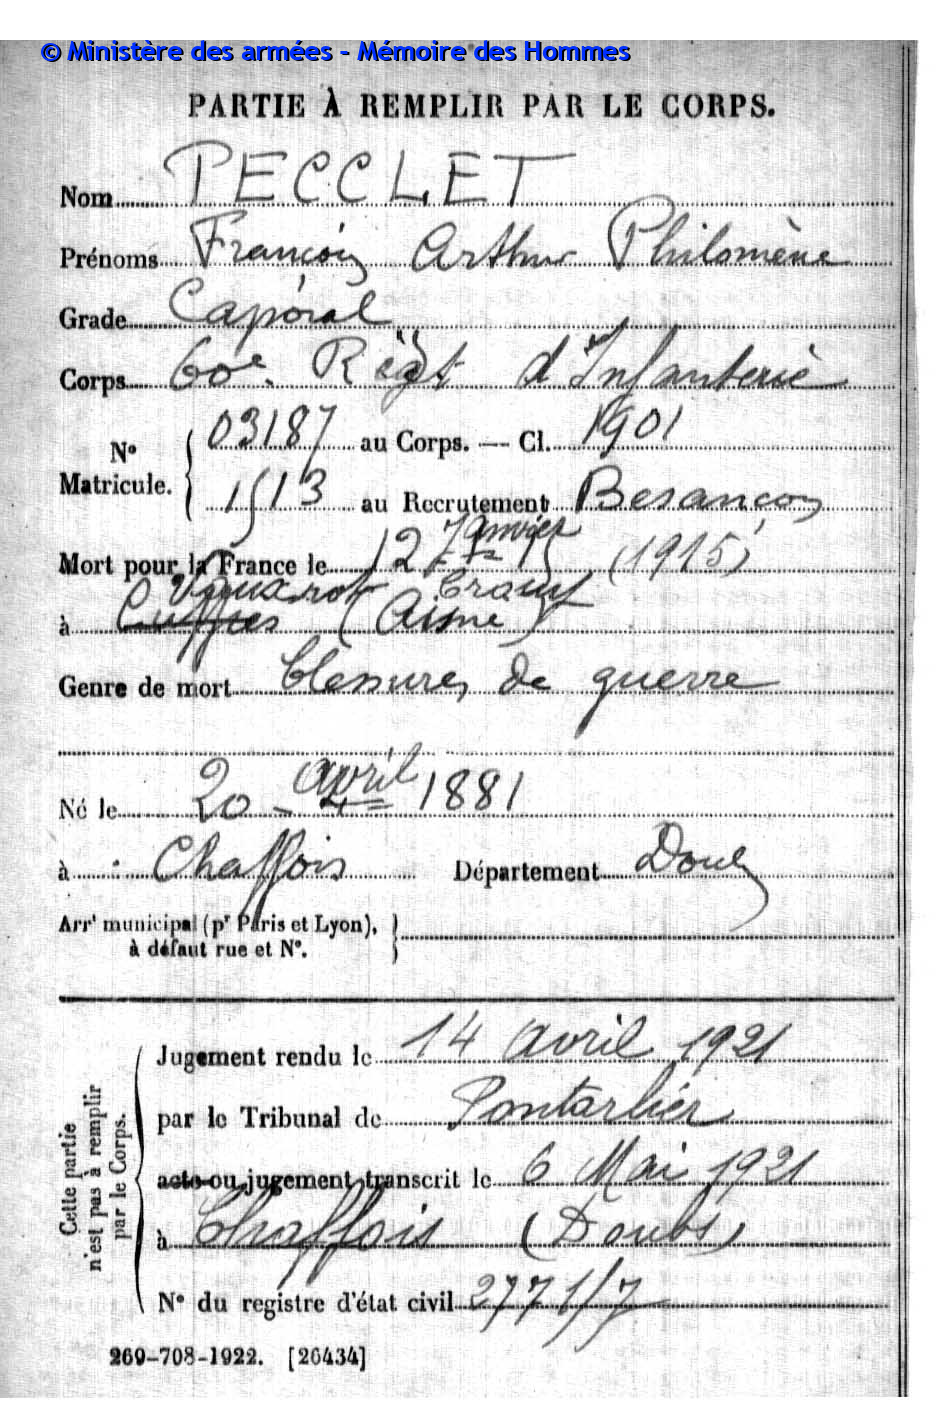 © Ministère des armées - Mémoire des Hommes
PARTIE À REMPLIR PAR LE CORPS.
Nom PECCLET
Prénoms François Arthur Philomène
Grade Caporal
Corps 60e. Règt d'Infanterie
N° Matricule. 03187 au Corps. — Cl. 1901
1513 au Recrutement Besançon
Mort pour la France le 12 Janvier 15 (1915)
Vauxrot Crouy
à Cuffies (Aisne)
Genre de mort blessures de guerre
Né le 20 - avril 1881
à Chaffois Département Doubs
Arrt municipal (pr Paris et Lyon),
à défaut rue et N°.
Cette partie
n'est pas à remplir
par le Corps.
Jugement rendu le 14 Avril 1921
par le Tribunal de Pontarlier
acte ou jugement transcrit le 6 Mai 1921
à Chaffois (Doubs)
N° du registre d'état civil 2771/7
269-708-1922. [26434]